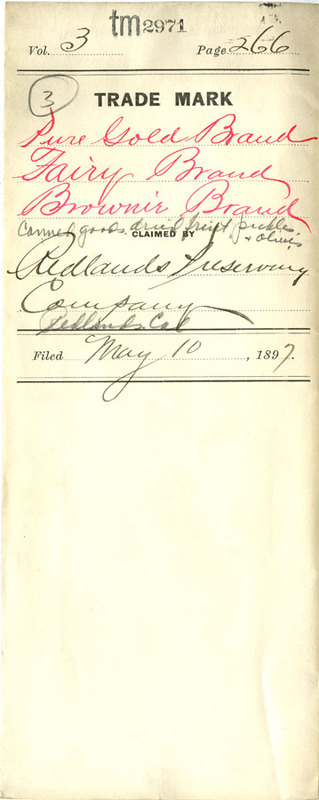 tm 2971
Vol. 3 Page 266
3
TRADE MARK
Pure Gold Brand
Fairy Brand
Brownie Brand
Canned goods dried fruit, pickles
+ olives
CLAIMED BY
Redlands Preserving
Company
Redlands Cal
Filed May 10, 1897.